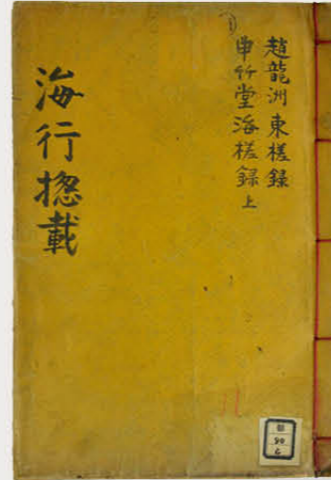 趙龍洲東槎錄
申竹堂海槎錄上
海行摠載